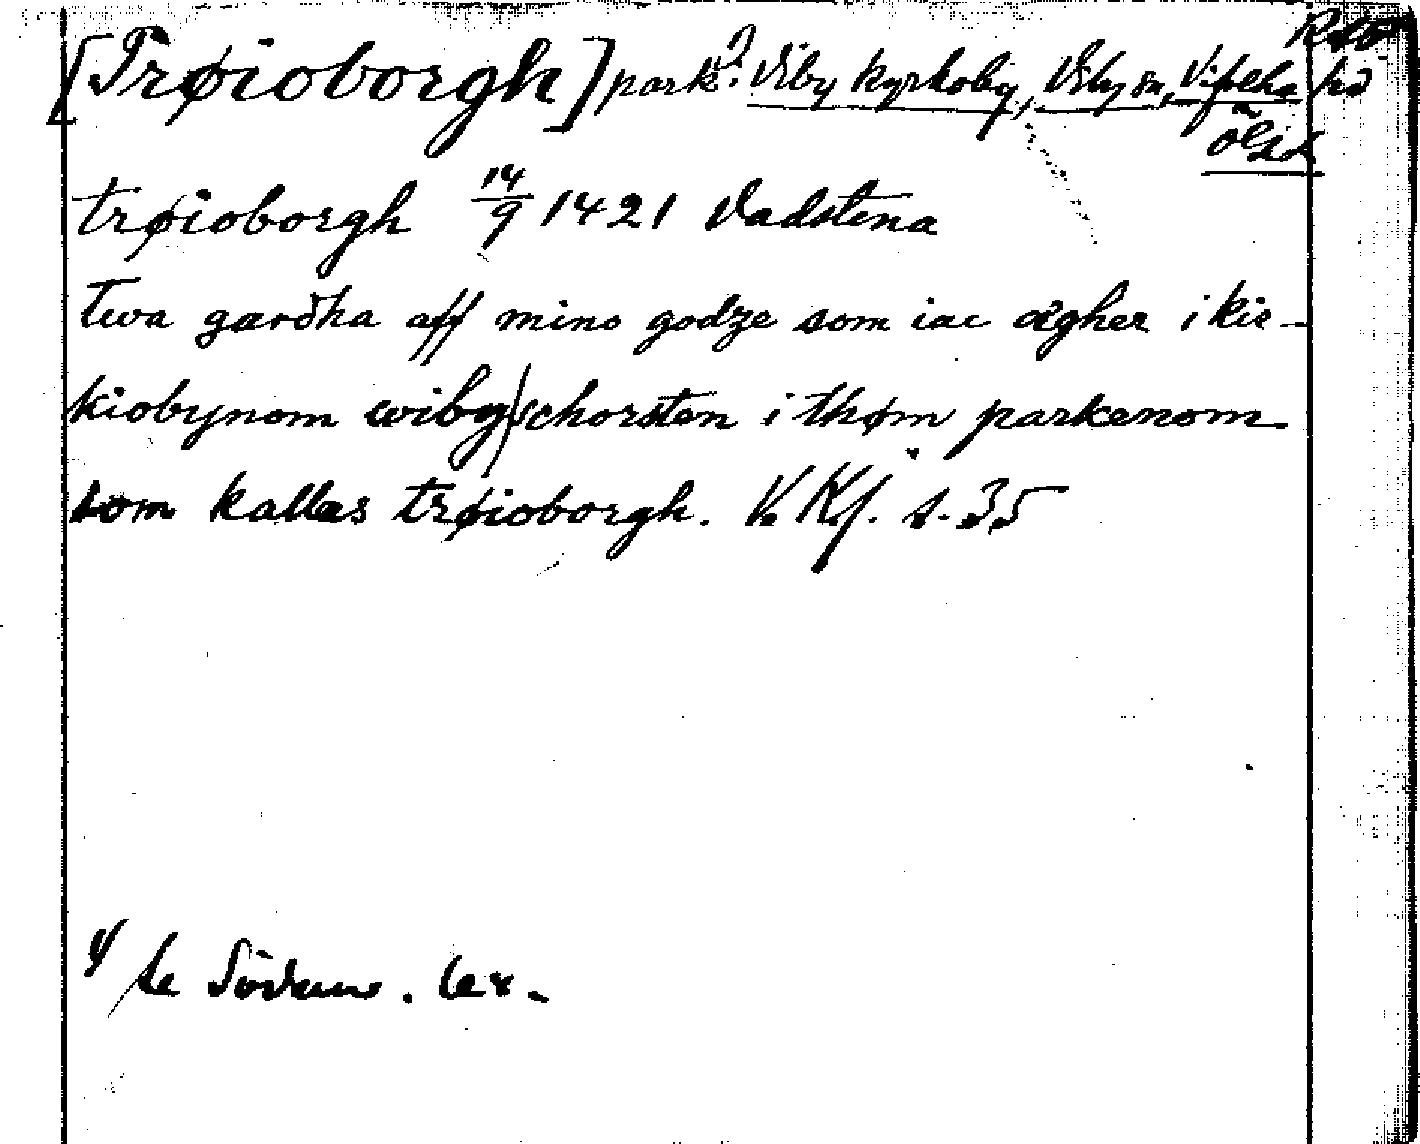 [Trøioborgh] park?. Viby kyrkoby, Viby sn, Vifolka hd
Ögl
trøioborgh 14/9 1421 Vadstena
twa gardha aff mino godze som iac ægher i kir-
kiobynom wiby schorsten i thøm parkenom
som kallas trøioborgh. VKJ. s. 35
1/ se Söderw. lex.